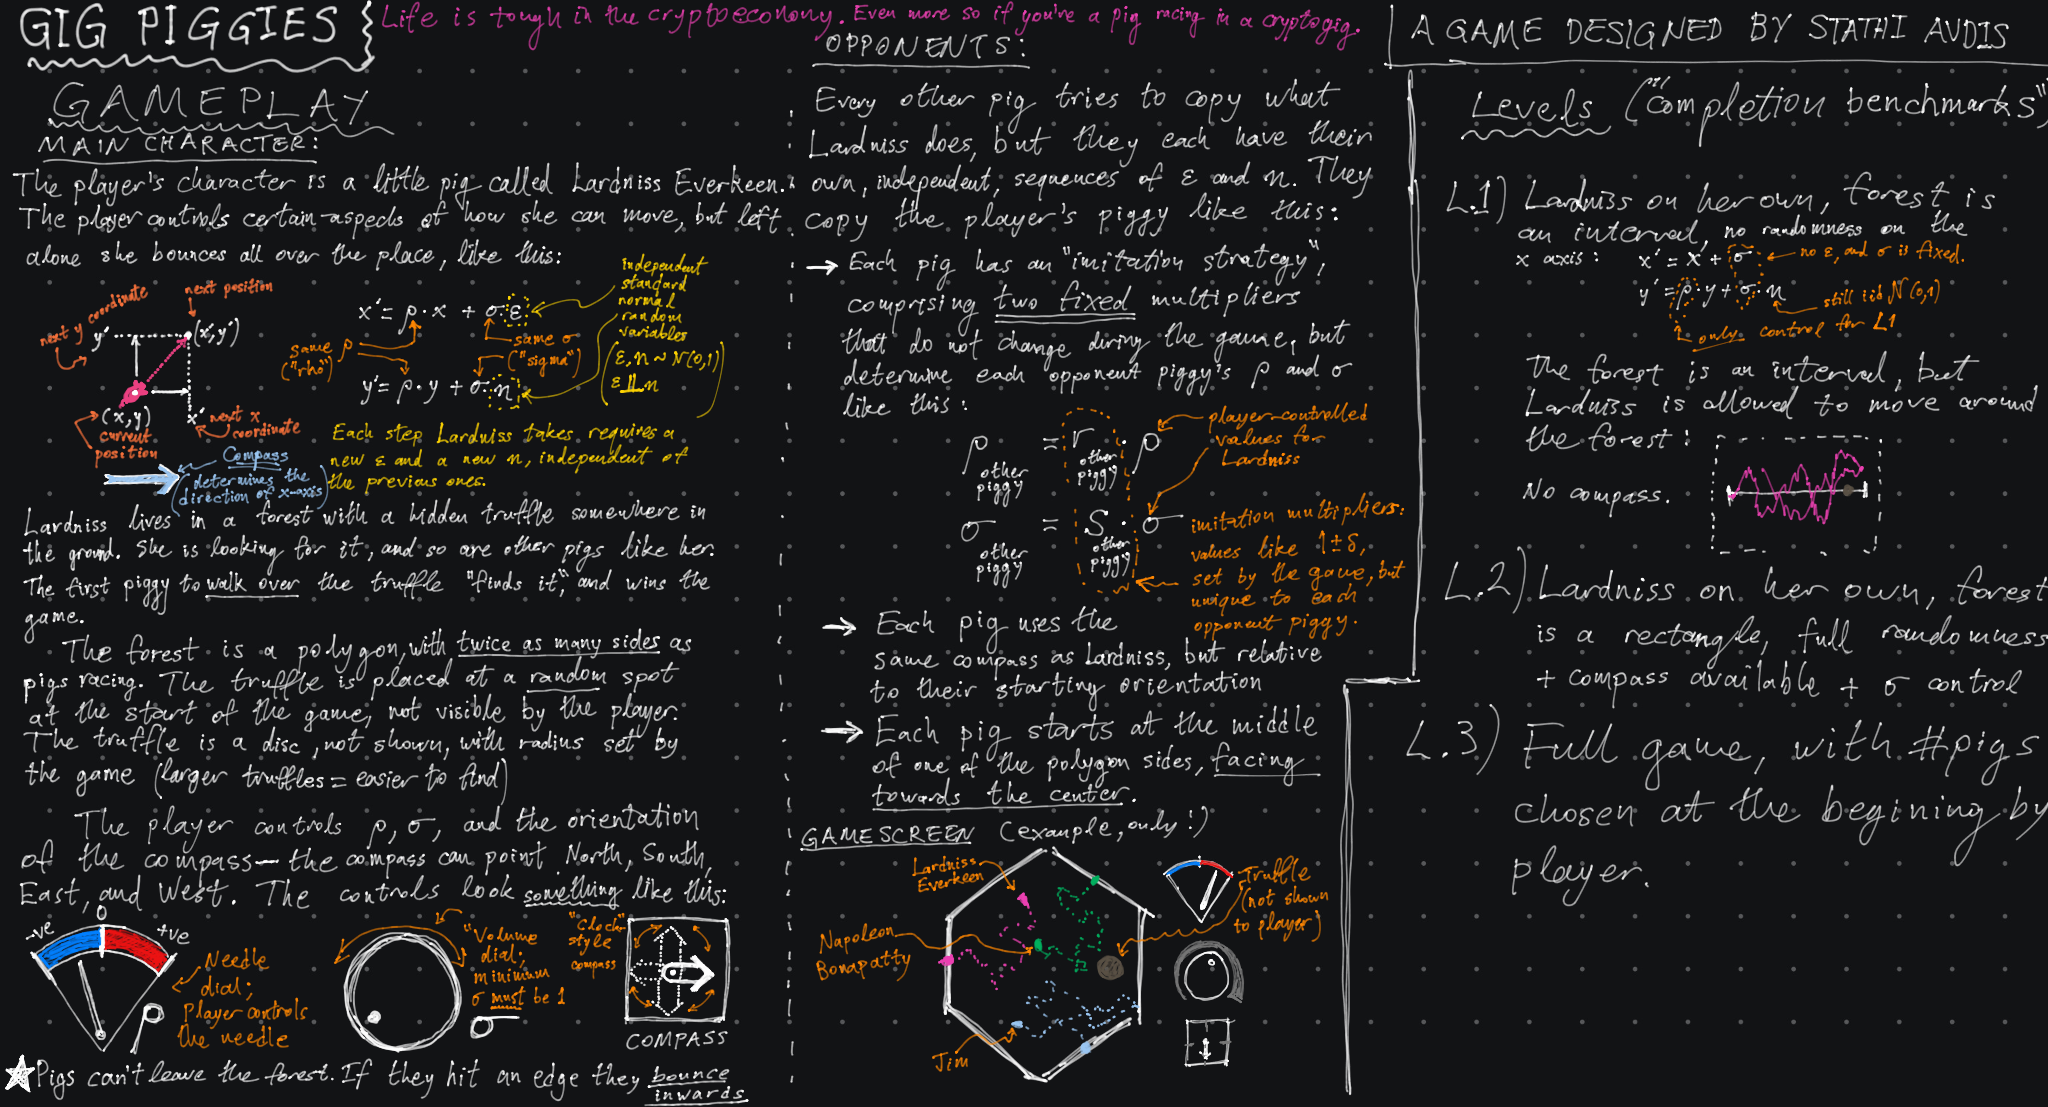 GIG PIGGIES
Life is tough in the cryptoeconomy. Even more so if you're a pig racing in a cryptogig.
A GAME DESIGNED BY STATHI AVDIS
GAMEPLAY
MAIN CHARACTER:
The player's character is a little pig called Lardniss Everkeen.
The player controls certain aspects of how she can move, but left
alone she bounces all over the place, like this:
next y coordinate
next position
y'
(x', y')
(x, y)
current
position
x'
next x
coordinate
same ρ
("rho")
x' = ρ · x + σ · ε
y' = ρ · y + σ · η
same σ
("sigma")
independent
standard
normal
random
variables
(ε, η ~ N(0,1)
ε ⊥⊥ η)
Compass
(determines the
direction of x-axis)
Each step Lardniss takes requires a
new ε and a new η, independent of
the previous ones.
Lardniss lives in a forest with a hidden truffle somewhere in
the ground. She is looking for it, and so are other pigs like her.
The first piggy to walk over the truffle "finds it", and wins the
game.
The forest is a polygon, with twice as many sides as
pigs racing. The truffle is placed at a random spot
at the start of the game, not visible by the player.
The truffle is a disc, not shown, with radius set by
the game (larger truffles = easier to find)
The player controls ρ, σ, and the orientation
of the compass—the compass can point North, South,
East, and West. The controls look something like this:
-ve
0
+ve
Needle
dial;
player controls
the needle
ρ
"Volume
dial;
minimum
σ must be 1
σ
"Clock"
style
compass
COMPASS
Pigs can't leave the forest. If they hit an edge they bounce
inwards
OPPONENTS:
Every other pig tries to copy what
Lardniss does, but they each have their
own, independent, sequences of ε and η. They
copy the player's piggy like this:
→ Each pig has an "imitation strategy",
comprising two fixed multipliers
that do not change diring the game, but
determine each opponent piggy's ρ and σ
like this:
ρ other piggy = r other piggy · ρ
σ other piggy = s other piggy · σ
player-controlled
values for
Lardniss
imitation multipliers:
values like 1±δ,
set by the game, but
unique to each
opponent piggy.
→ Each pig uses the
same compass as Lardniss, but relative
to their starting orientation
→ Each pig starts at the middle
of one of the polygon sides, facing
towards the center.
GAMESCREEN (example, only!)
Lardniss
Everkeen
Napoleon
Bonapatty
Jim
Truffle
(not shown
to player)
Levels ("completion benchmarks")
L.1) Lardniss on her own, forest is
an interval, no randomness on the
x axis: x' = x + σ
no ε, and σ is fixed.
y' = ρ · y + σ · η
still iid N(0,1)
only control for L1
The forest is an interval, but
Lardniss is allowed to move around
the forest:
No compass.
L.2) Lardniss on her own, forest
is a rectangle, full randomness
+ compass available + σ control
L.3) Full game, with #pigs
chosen at the begining by
player.